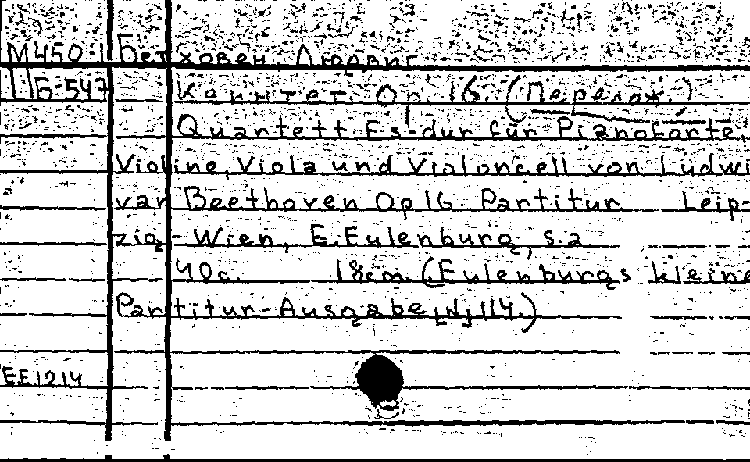 М450-1 Бетховен Людвиг
ПБ-547 Квинтет. Op. 16. (Перелож.)
Quartett Es-dur für Pianoforte,
Violine, Viola und Violoncell von Ludwi
van Beethoven Op 16 Partitur Leip-
zig-Wien, E. Eulenburg, s.a
40c. 18cm. (Eulenburgs kleine
Partitur-Ausgabe, N 114.)
EE1214